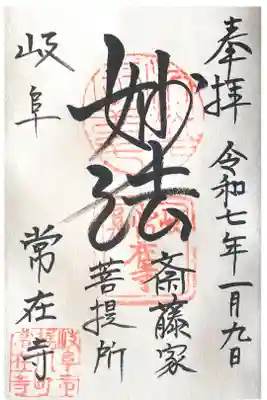 奉拝 令和七年一月九日
妙法
斎藤家
菩提所
岐阜 常在寺